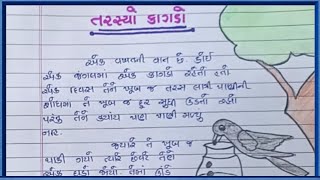 તરસ્યો કાગડો
એક વખતની વાત છે. કોઈ
એક જંગલમાં એક કાગડો રહેતો હતો
એક દિવસ તેને ખૂબ જ તરસ લાગી પાણીની
શોધમાં તે ખૂબ જ દૂર સુધી ઉડતો રહ્યો
પરંતુ તેને ક્યાંય પણ પાણી મળ્યુ
નહિ.
જ્યારે તે ખૂબ જ
થાકી ગયો ત્યારે છેવટે તેણે
એક ઘડો જોયો. તેનો